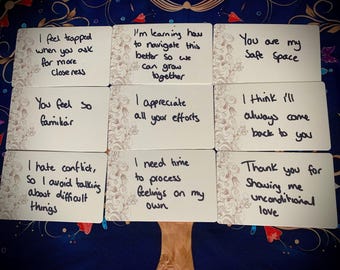 I feel trapped
when you ask
for more
closeness
I'm learning how
to navigate this
better so we
can grow
together
You are my
safe space
You feel so
familiar
I appreciate
all your efforts
I think i'll
always come
back to you
I hate conflict,
so I avoid talking
about difficult
things
I need time
to process
feelings on my
own
Thank you for
showing me
unconditional
love